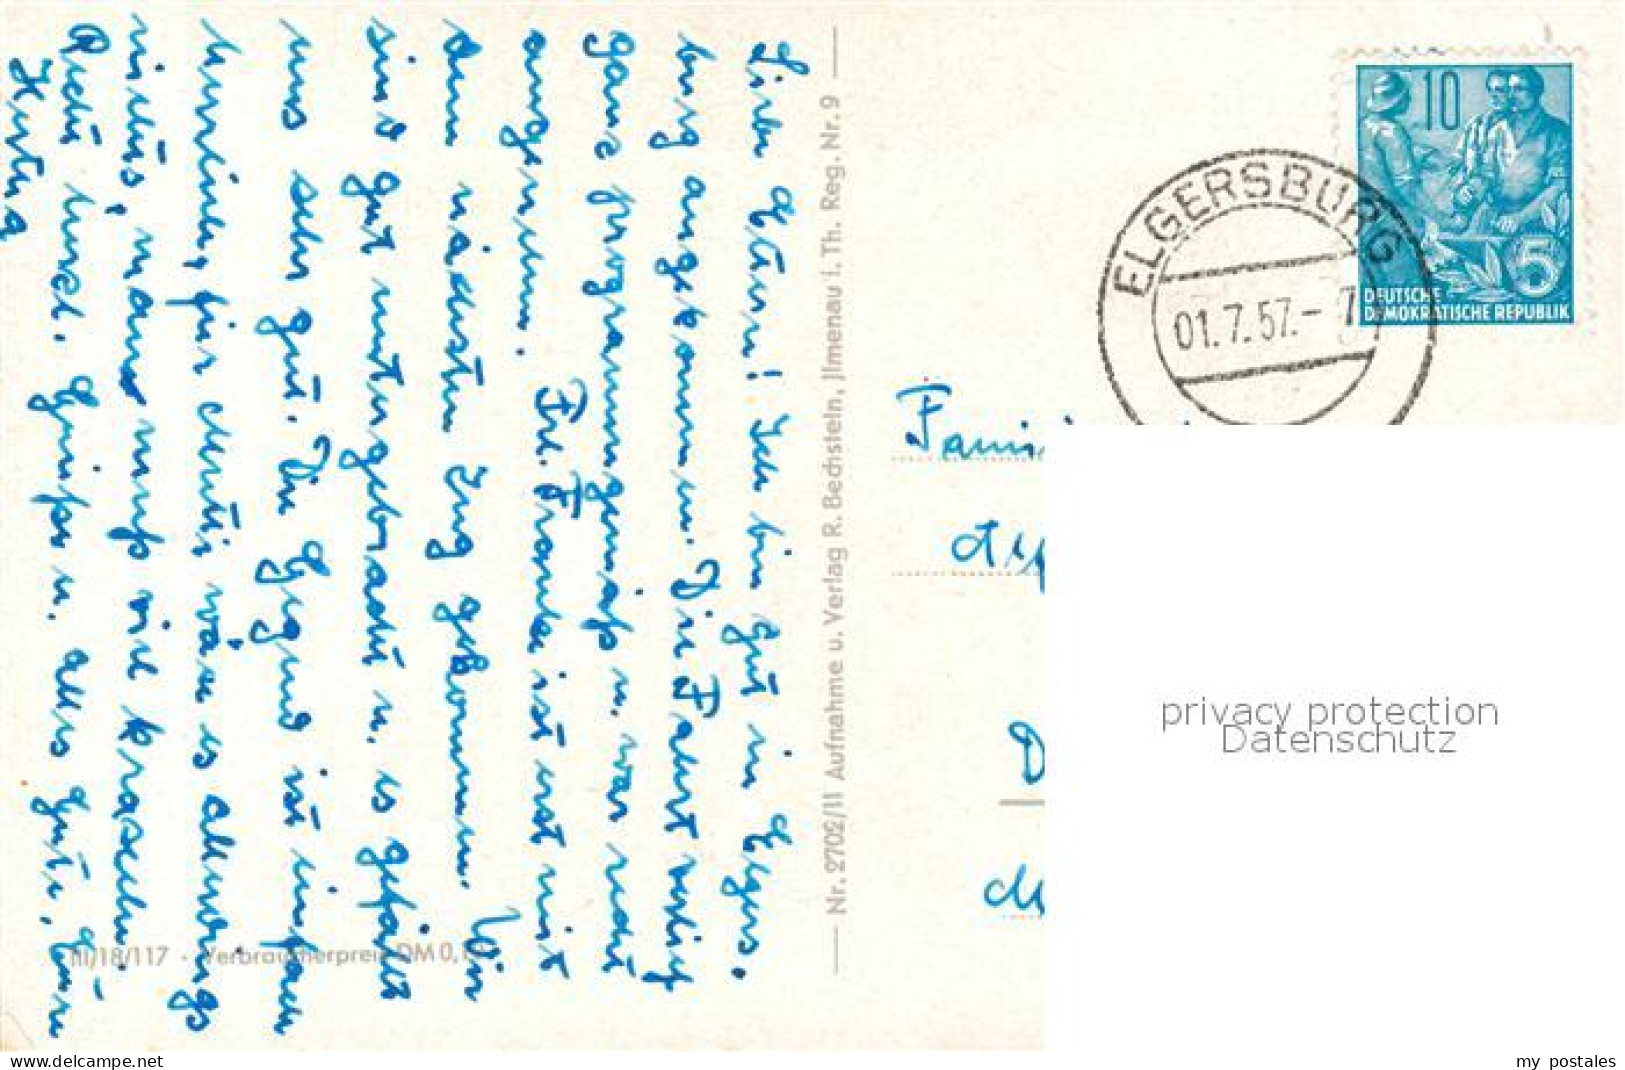 Liebe Eltern! Ich bin gut in Elgers-
burg angekommen. Die Fahrt verlief
ganz programmgemäß u. war recht
angenehm. Frl. Franke ist erst mit
dem nächsten Zug gekommen. Wir
sind gut untergebracht u. es gefällt
uns sehr gut. Die Gegend ist einfach
für wäre es allerdings
nichts, man muß viel kraxeln.
Recht herzl. Grüße u. alles Gute, Eure
Herta
III/18/117 · Verbraucherpreis DM 0,
Nr. 2702/11 Aufnahme u. Verlag R. Bechstein, Jlmenau i. Th. Reg.-Nr. 9
10
5
DEUTSCHE
DEMOKRATISCHE REPUBLIK
ELGERSBURG
01.7.57.- 7
Fami
privacy protection
Datenschutz
www.delcampe.net
my_postales